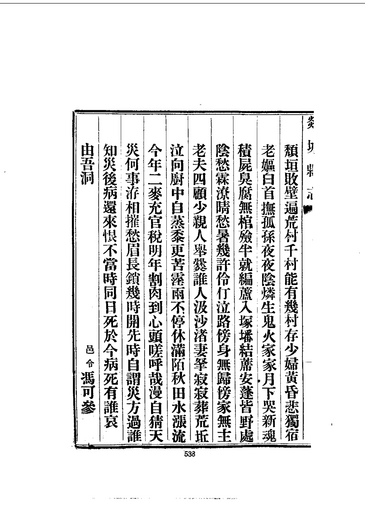 頹垣敗壁遍荒村千村能有幾村存少婦黃昏悲獨宿
老嫗白首撫孤孫夜夜陰燐生鬼火家家月下哭新魂
積屍臭腐無棺殮半就編蘆入塚墦結蓆安蓬皆野處
陰愁霖潦晴愁暑幾許伶仃泣路傍身無歸傍家無主
老夫四顧少親人舉爨誰人汲沙渚妻孥寂寂葬荒坵
泣向廚中自蒸黍更苦霪雨不停休滿陌秋田水漲流
今年二麥充官稅明年割肉到心頭嗟呼哉漫自猜天
災何事洊相摧愁眉長鎖幾時開先時自謂災方過誰
知災後病還來恨不當時同日死於今病死有誰哀
由吾洞
邑令 馮可參
538